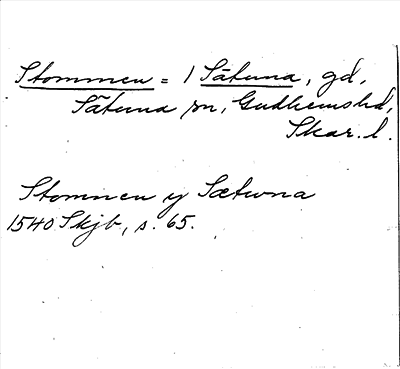 Stommen = 1 Sätuna, gd,
Sätuna sn, Gudhemshd,
Skar. l.
Stomnen y Sætwna
1540 Skjb, s. 65.